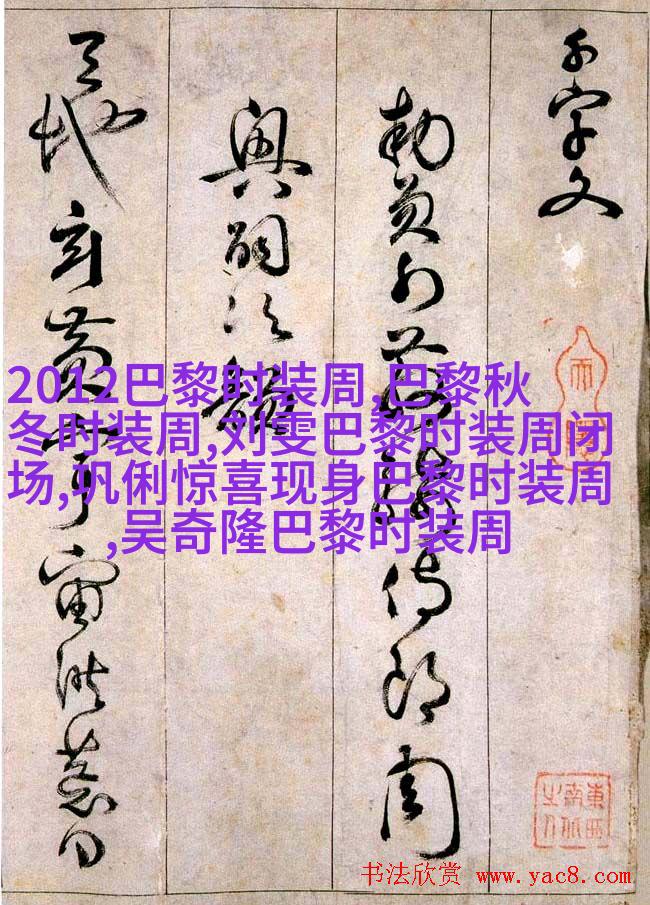 千字文
勅員外散騎侍郎周
興嗣次韻
天地玄黃宇宙洪荒日
2012巴黎时装周,巴黎秋
冬时装周,刘雯巴黎时装周闭
场,巩俐惊喜现身巴黎时装周
,吴奇隆巴黎时装周
東西南北之人
书法欣赏 www.yac8.com